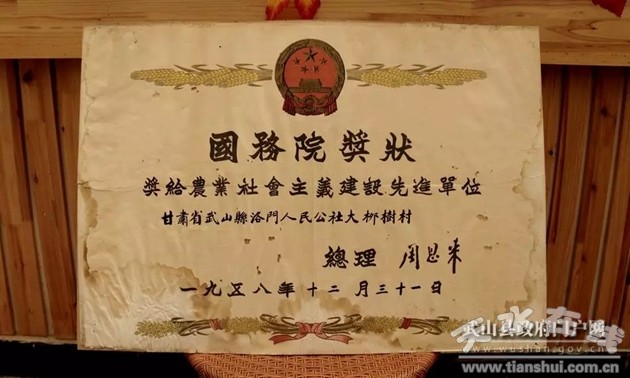 國務院獎狀
獎給農業社會主義建設先進單位
甘肅省武山縣洛門人民公社大柳樹村
總理 周恩来
一九五八年十二月三十一日
天水在线
武山县政府门户网
www.wushan.gov.cn
www.tianshui.com.cn